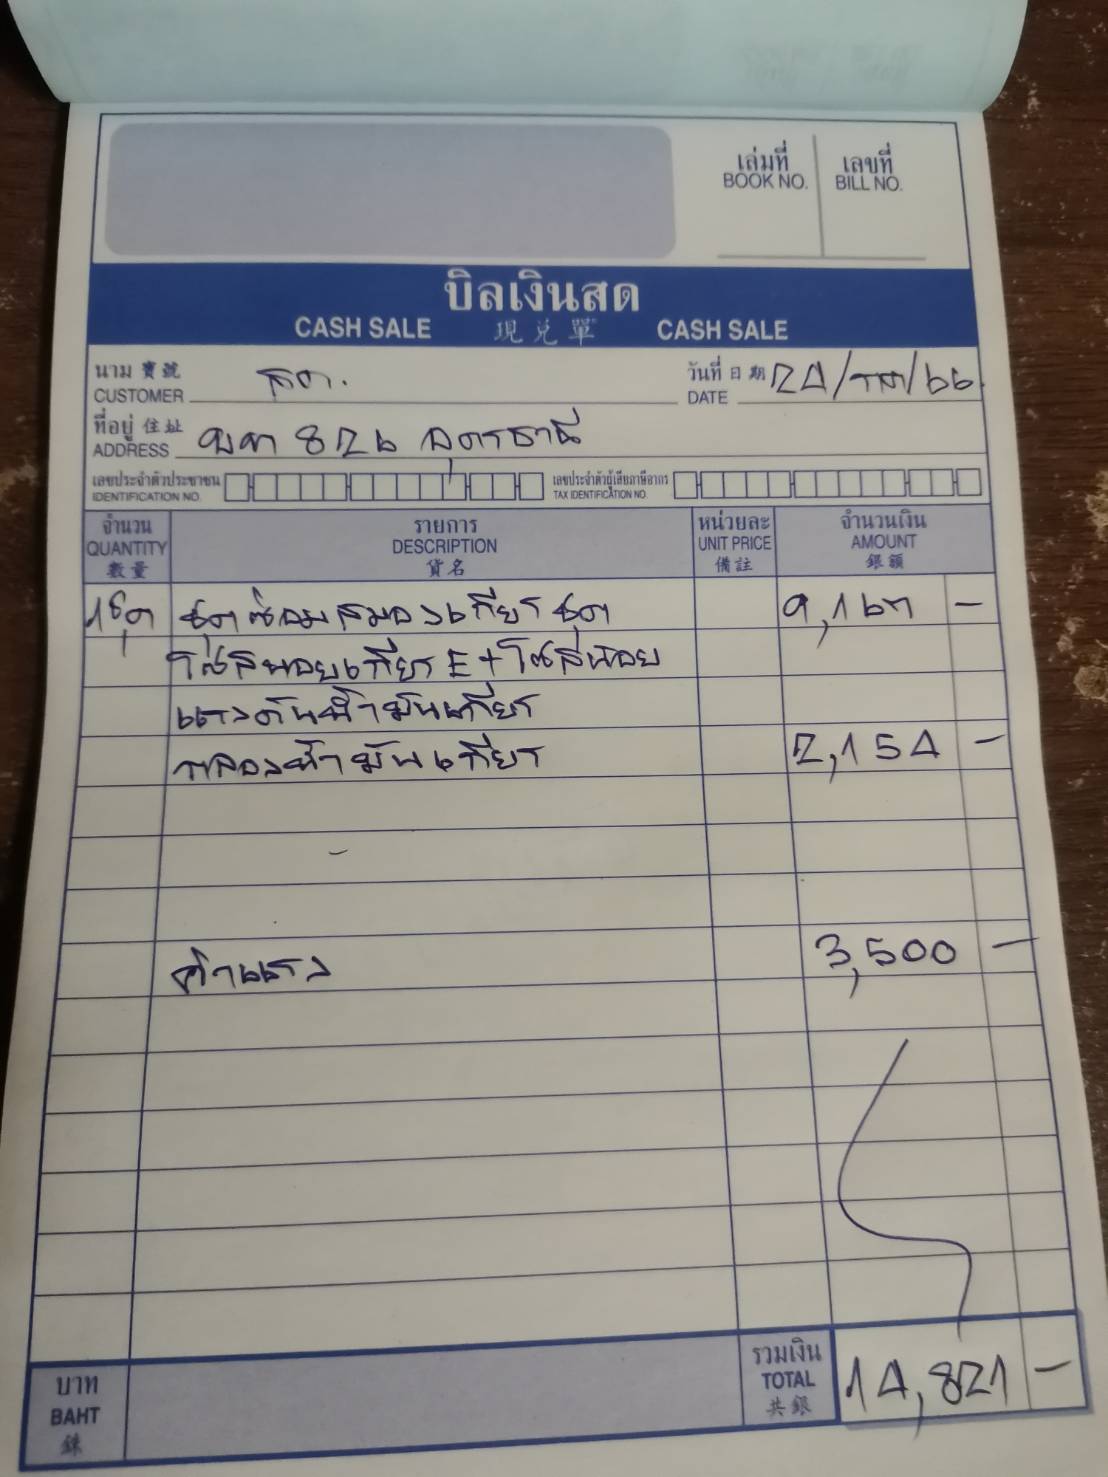 เล่มที่ เลขที่
BOOK NO. BILL NO.
บิลเงินสด
CASH SALE 現兌單 CASH SALE
นาม 寶號 วันที่ 日期 24/ /66
CUSTOMER DATE
ที่อยู่ 住址 826 อุดรธานี
ADDRESS
เลขประจำตัวประชาชน เลขประจำตัวผู้เสียภาษีอากร
IDENTIFICATION NO. TAX IDENTIFICATION NO.
จำนวน รายการ หน่วยละ จำนวนเงิน
QUANTITY DESCRIPTION UNIT PRICE AMOUNT
數量 貨名 備註 銀額
1ชุด ชุดซ่อมสมองเกียร์ ชุด 9,167 -
โซลินอยเกียร์ E + โซลินอย
แรงดันน้ำมันเกียร์
กรองน้ำมันเกียร์ 2,154 -
ค่าแรง 3,500 -
บาท รวมเงิน 14,821 -
BAHT TOTAL
銖 共銀